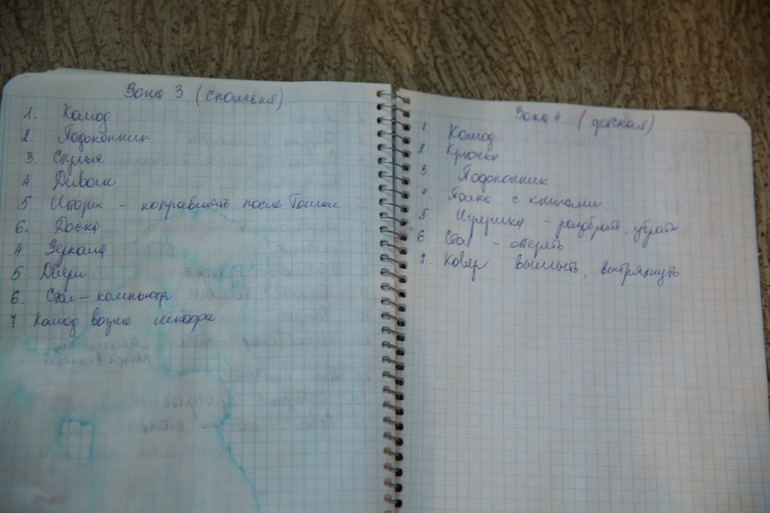 Зона 3 (спальня)
1. Комод
2. Подоконник
3. Стулья
4. Диван
5 Шторы - поправлять после
6. Доска
4. Зеркала
5. Двери
6. Стол - компьютер
7 Комод возле шкафа
Зона 4 (детская)
1 Комод
2 Крючки
3. Подоконник
4 Полка с книгами
5 Игрушки - разобрать, убрать
6. Стол - оттереть
7. Ковер вымыть, вытряхнуть